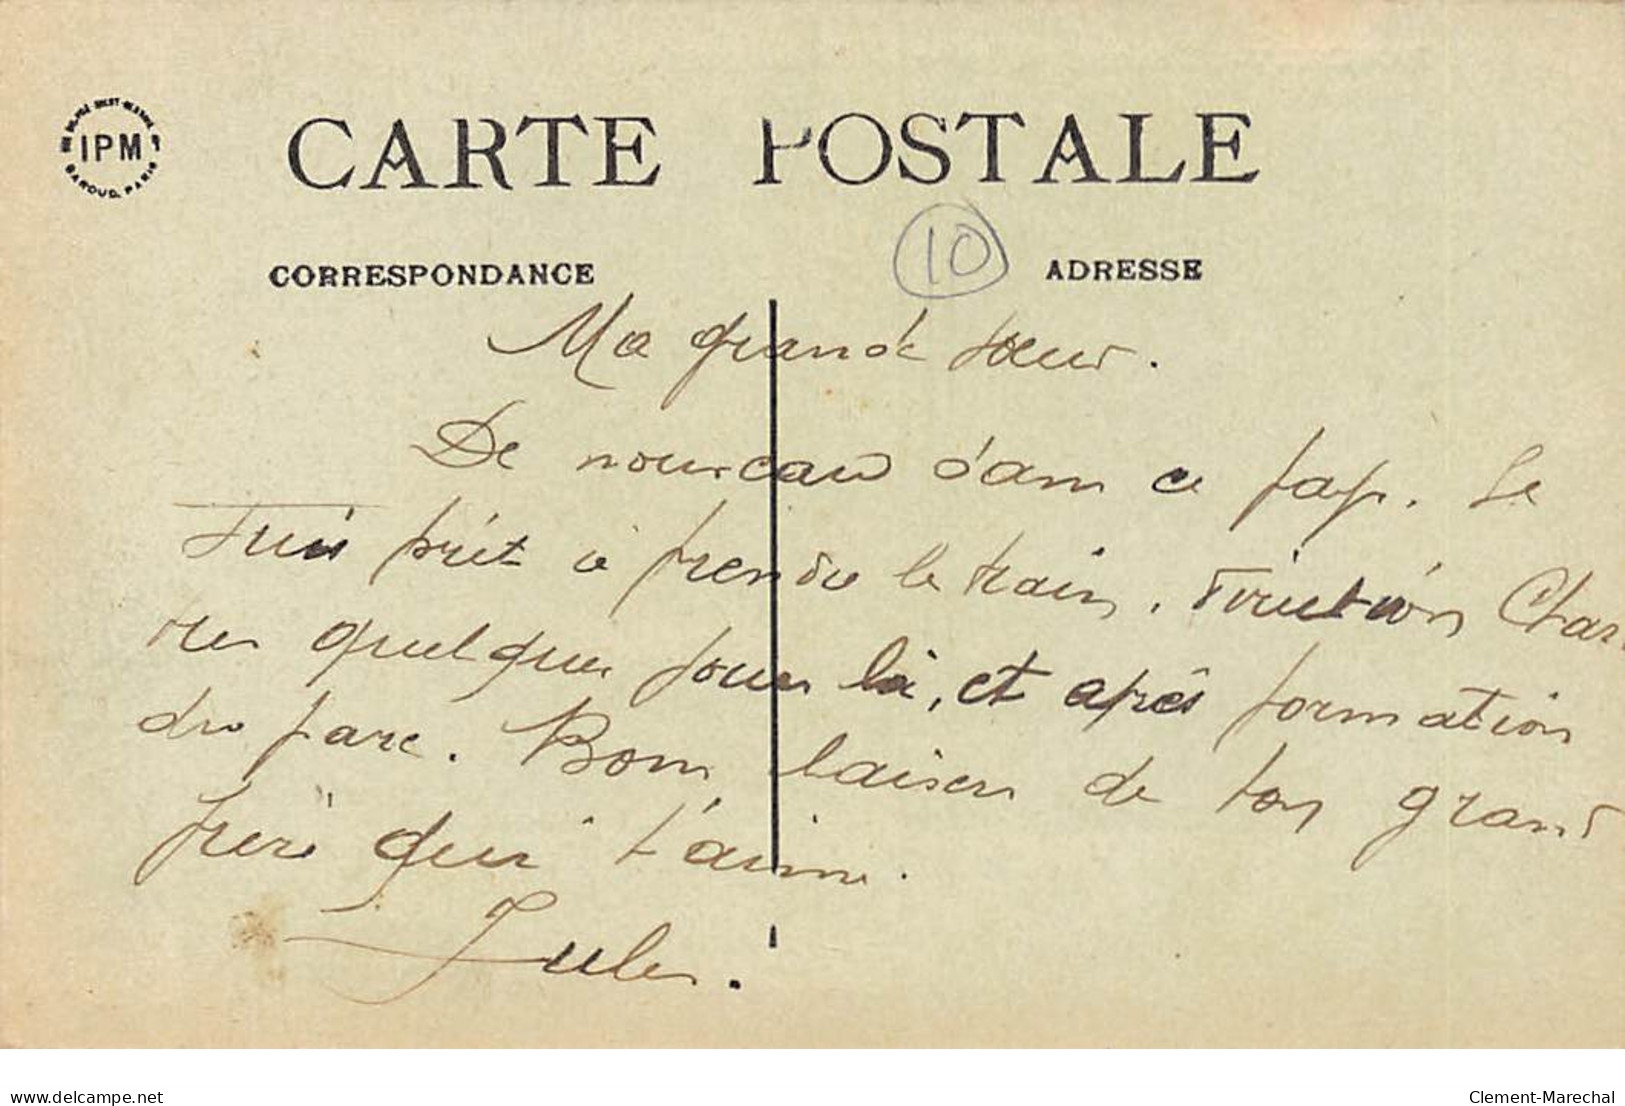 IPM
CAROUD. PARIS
CARTE POSTALE
CORRESPONDANCE
10
ADRESSE
Ma grande sœur.
De nouveau dans ce pays. Je
suis prêt à prendre le train. Direction Char
tres quelques jours là, et après formation
du parc. Bons baisers de ton grand
frère qui t'aime.
Jules.
www.delcampe.net
Clement-Marechal